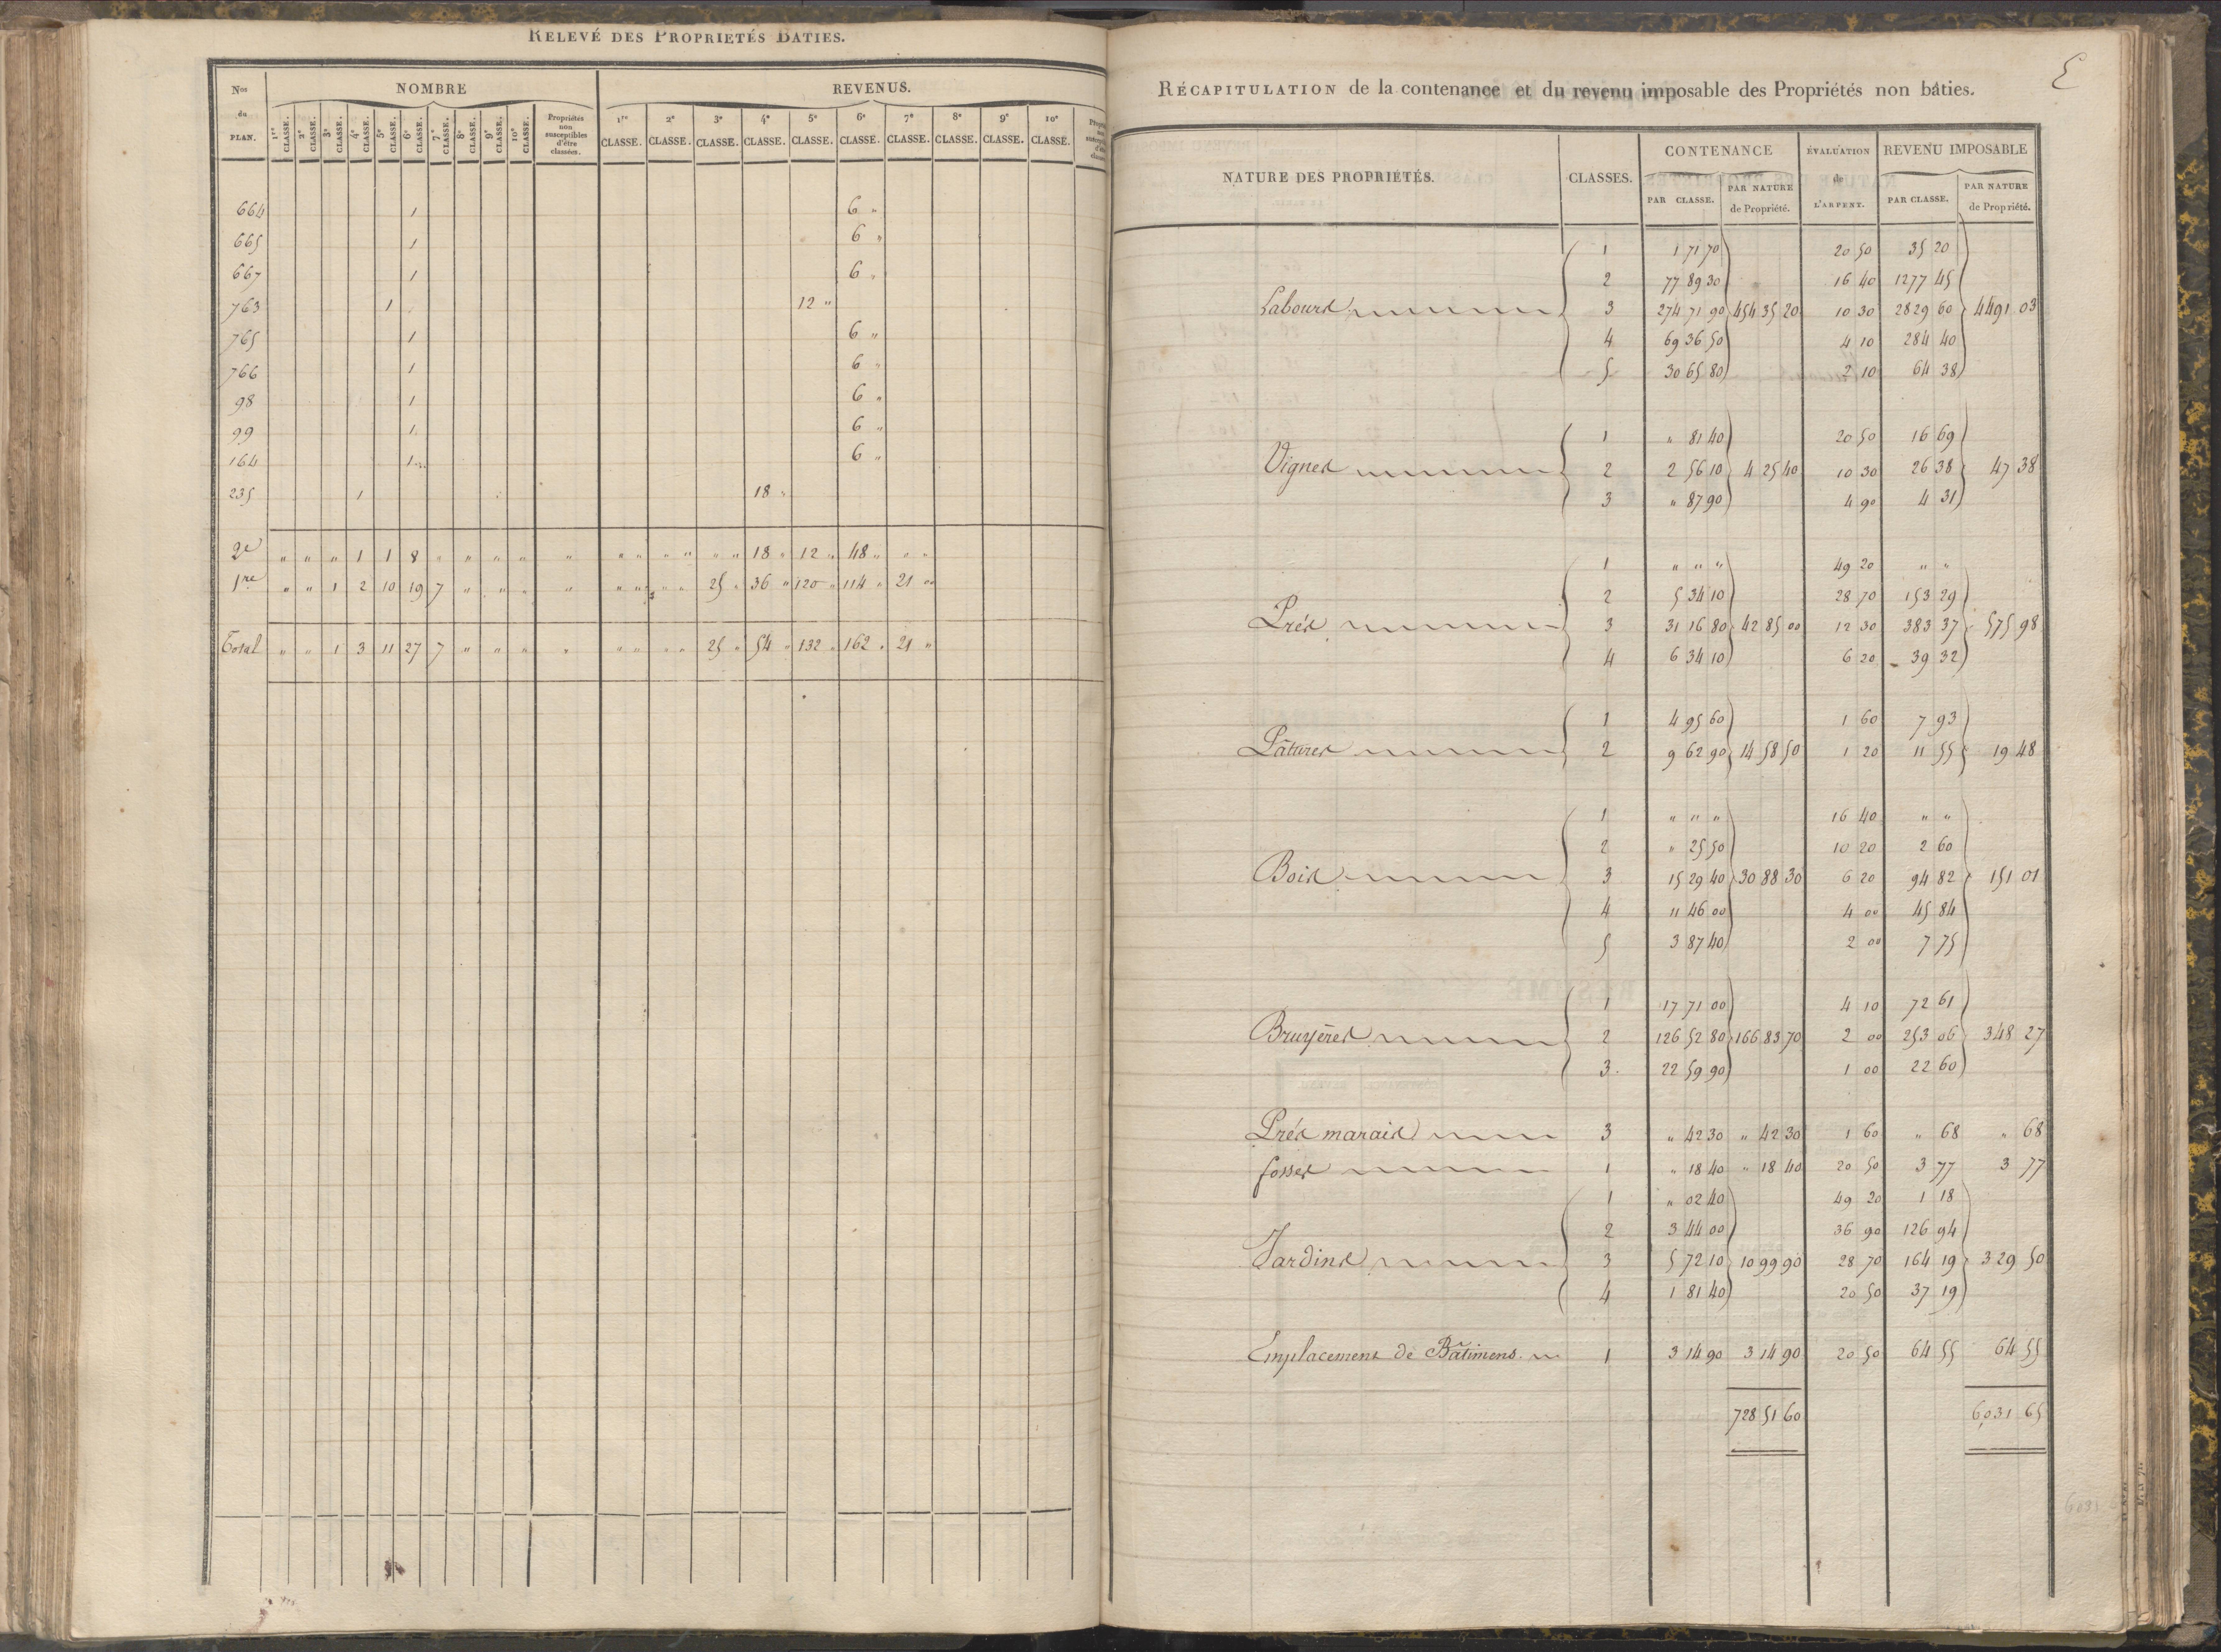 RELEVÉ DES PROPRIETÉS BATIES.
Nos du PLAN. NOMBRE REVENUS.
1re CLASSE. 2e CLASSE. 3e CLASSE. 4e CLASSE. 5e CLASSE. 6e CLASSE. 7e CLASSE. 8e CLASSE. 9e CLASSE. 10e CLASSE. Propriétés non susceptibles d'être classées. 1re CLASSE. 2e CLASSE. 3e CLASSE. 4e CLASSE. 5e CLASSE. 6e CLASSE. 7e CLASSE. 8e CLASSE. 9e CLASSE. 10e CLASSE.
664 1 6 "
665 1 6 "
667 1 6 "
763 1 12 "
765 1 6 "
766 1 6 "
98 1 6 "
99 1 6 "
164 1 6 "
235 1 18 "
2e " " " 1 1 8 " " " " " " " " " " " 18 " 12 " 48 " " "
1re " " 1 2 10 19 7 " " " " " " " " 25 " 36 " 120 " 114 " 21 00
Total " " 1 3 11 27 7 " " " " " " " " 25 " 54 " 132 " 162 " 21 "
E
RÉCAPITULATION de la contenance et du revenu imposable des Propriétés non bâties.
NATURE DES PROPRIÉTÉS. CLASSES. CONTENANCE PAR CLASSE. PAR NATURE de Propriété. ÉVALUATION de L'ARPENT. REVENU IMPOSABLE PAR CLASSE. PAR NATURE de Propriété.
1 1 71 70 20 50 35 20
2 77 89 30 16 40 1277 45
Labours 3 274 71 90 454 35 20 10 30 2829 60 4491 03
4 69 36 50 4 10 284 40
5 30 65 80 2 10 64 38
1 " 81 40 20 50 16 69
Vignes 2 2 56 10 4 25 40 10 30 26 38 47 38
3 " 87 90 4 90 4 31
1 " " " 49 20 " "
2 5 34 10 28 70 153 29
Prés 3 31 16 80 42 85 00 12 30 383 37 575 98
4 6 34 10 6 20 39 32
1 4 95 60 1 60 7 93
Pâtures 2 9 62 90 14 58 50 1 20 11 55 19 48
1 " " " 16 40 " "
2 " 25 50 10 20 2 60
Bois 3 15 29 40 30 88 30 6 20 94 82 151 01
4 11 46 00 4 00 45 84
5 3 87 40 2 00 7 75
1 17 71 00 4 10 72 61
Bruyères 2 126 52 80 166 83 70 2 00 253 06 348 27
3 22 59 90 1 00 22 60
Prés marais 3 " 42 30 " 42 30 1 60 " 68 " 68
fosses 1 " 18 40 " 18 40 20 50 3 77 3 77
1 " 02 40 49 20 1 18
2 3 44 00 36 90 126 94
Jardins 3 5 72 10 10 99 90 28 70 164 19 329 50
4 1 81 40 20 50 37 19
Emplacement de Bâtimens. 1 3 14 90 3 14 90 20 50 64 55 64 55
728 51 60 6031 65